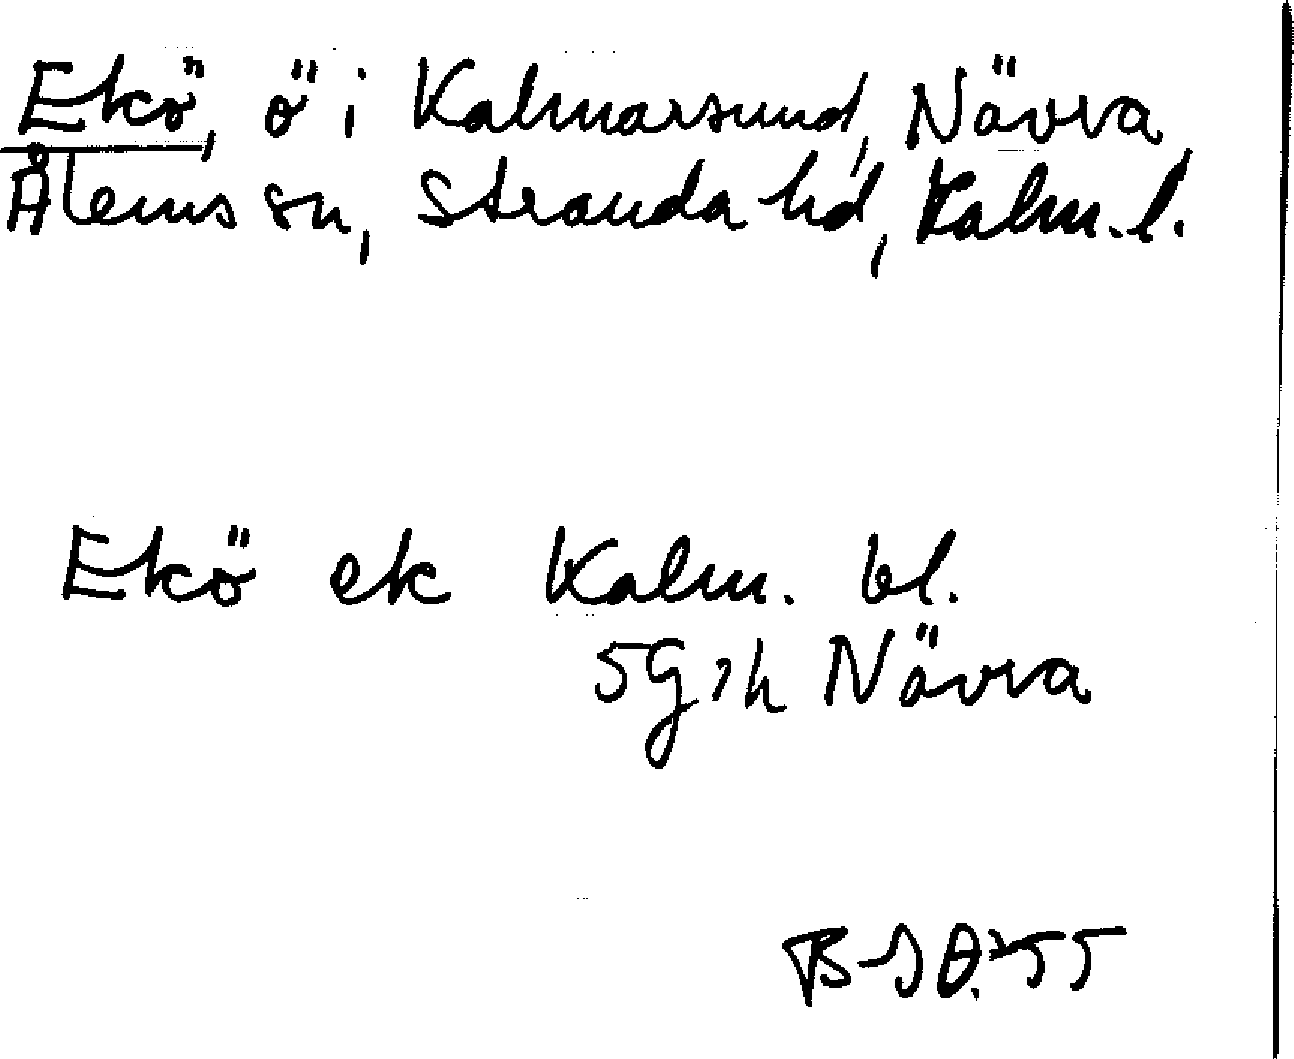 Ekö, ö i Kalmarsund, Nävra
Ålems sn, Stranda hd, Kalm. l.
Ekö ek Kalm. bl.
5G Nävra
55